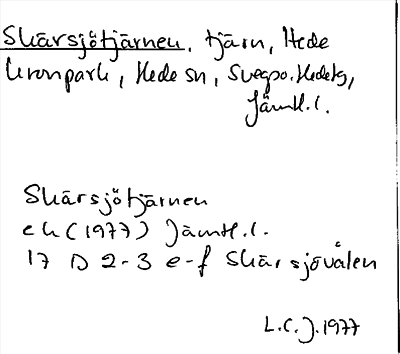 Skärsjötjärnen, tjärn, Hede
kronpark, Hede sn, Svegs o. Hedetg,
Jämtl.l.
Skärsjötjärnen
ek (1977) Jämtl.l.
17 D 2-3 e-f Skärsjövålen
L.C.J. 1977